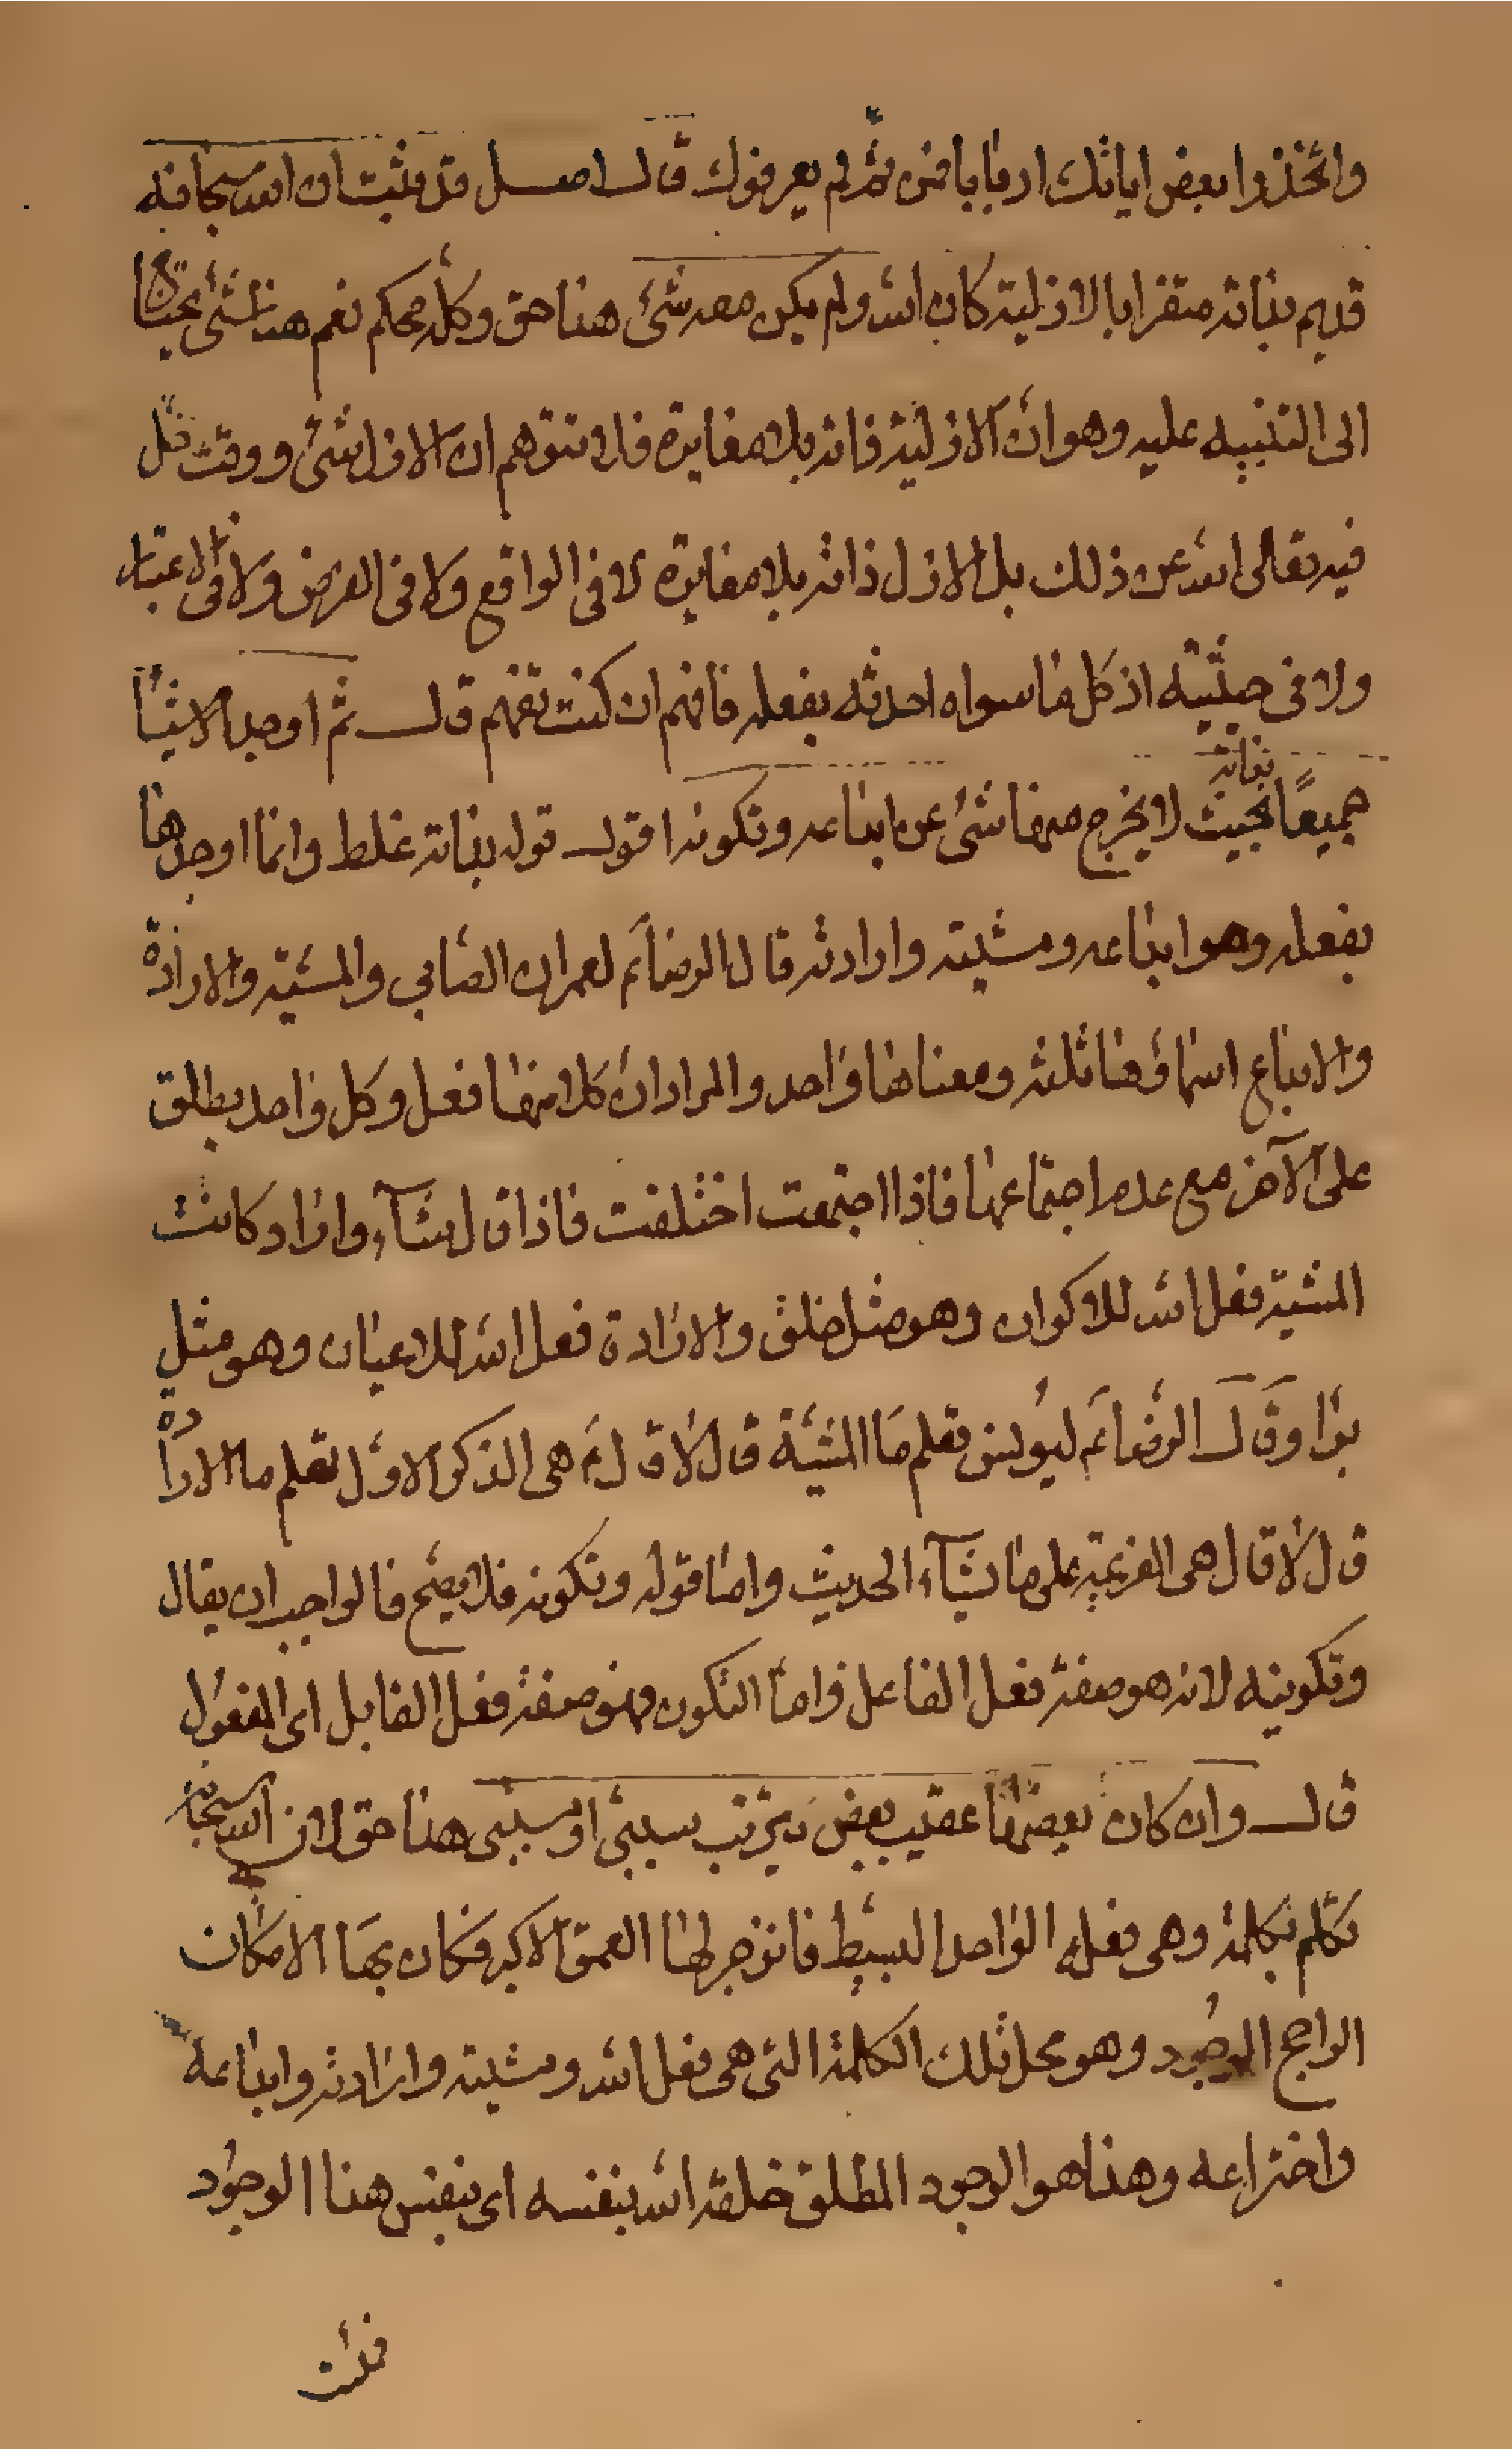 واتخذوا بعض اياتك اربابا فمن ثم لم يعرفوك قال اصل قد ثبت ان الله سبحانه
قديم بذاته متفرد بالازلية كان الله ولم يكن معه شئ هذا حق وكله محكم نعم هنا شئ يحتاج
الى التنبيه عليه وهو ان الازلية ذاته بلا مغايرة فلا تتوهم ان الازل شئ ووقت حل
فيه تعالى الله عن ذلك بل الازل ذاته بلا مغايرة لا فى الواقع ولا فى الفرض ولا فى الاعتبار
ولا فى حيثية اذ كل ما سواه احدثه بفعله فافهم ان كنت تفهم قال ثم اوجد الاشيآء
جميعًا بذاته بحيث لا يخرج منها شئ عن ابداعه وتكونه اقول قوله بذاته غلط وانما اوجدها
بفعله وهو ابداعه ومشيته وارادته قال الرضا ع لعمران الصابي والمشية والارادة
والابداع اسماؤها ثلثه ومعناها واحد والمراد ان كلا منها فعل وكل واحد يطلق
على الآخر مع عدم اجتماعها فاذا اجتمعت اختلفت فاذا قال شآء واراد كانت
المشية فعل الله للاكوان وهو مثل خلق والارادة فعل الله للاعيان وهو مثل
برا وقال الرضا ع ليونس تعلم ما المشية قال لا قال ع هى الذكر الاول تعلم ما الارادة
قال لا قال هى العزيمة على ما يشآء الحديث واما قوله وتكونه فلا يصح فالواجب ان يقال
وتكوينه لانه هو صفة فعل الفاعل واما التكون فهو صفة فعل القابل اى المفعول
قال وان كان بعضها عقيب بعض بترتب سببى او مسببى هذا حق لان الله سبحانه
تكلم بكلمة وهى فعله الواحد البسيط فانوجد لها العمق الاكبر فكان بها الامكان
الراجح الوجود وهو محل تلك الكلمة التى هى فعل الله ومشيته وارادته وابداعه
واختراعه وهذا هو الوجود المطلق خلقه الله بنفسه اى بنفس هذا الوجود